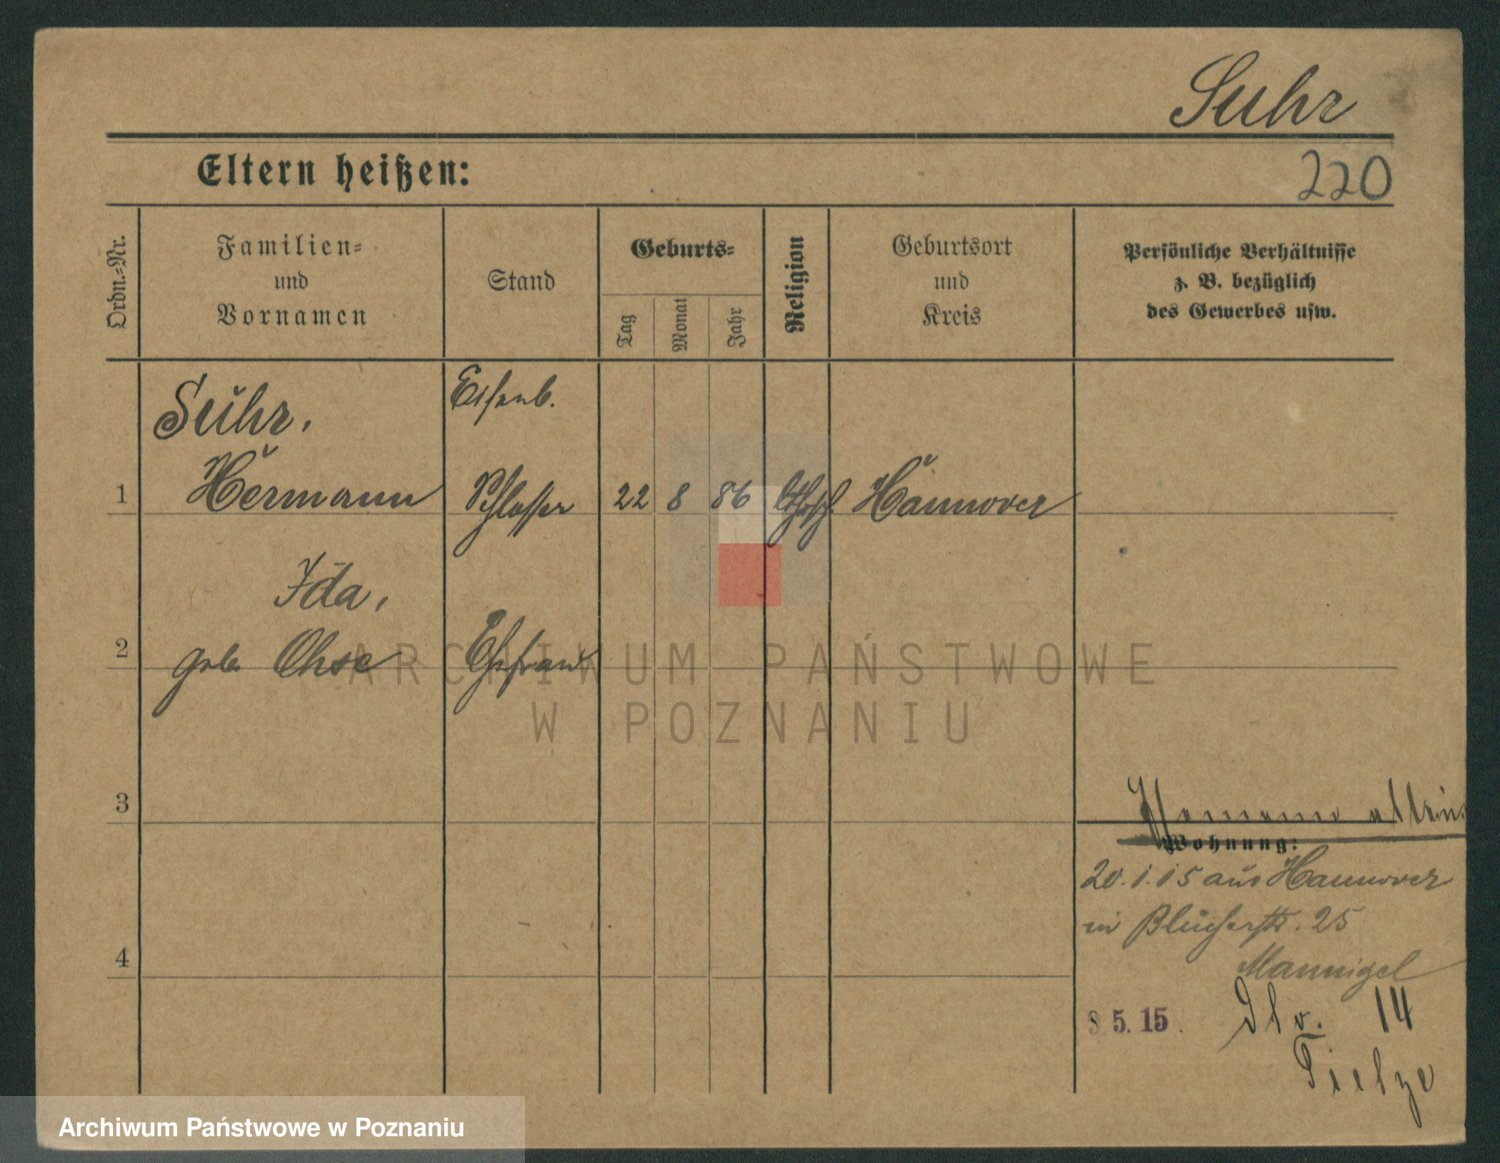 Suhr
220
Eltern heißen:
Ordn.-Nr.
Familien-
und
Vornamen
Stand
Geburts-
Tag
Monat
Jahr
Religion
Geburtsort
und
Kreis
Persönliche Verhältnisse
z. B. bezüglich
des Gewerbes usw.
Suhr, Eisenb.
1 Hermann Schlosser 22 8 86 Hannover
Ida,
2 geb. Ohse Ehefrau
ARCHIWUM PAŃSTWOWE
W POZNANIU
3
Hemann allein.
Wohnung:
20.1.15 aus Hannover
in Blücherstr. 25
4
Mannigel
8 5. 15. 14
Tietze
Archiwum Państwowe w Poznaniu